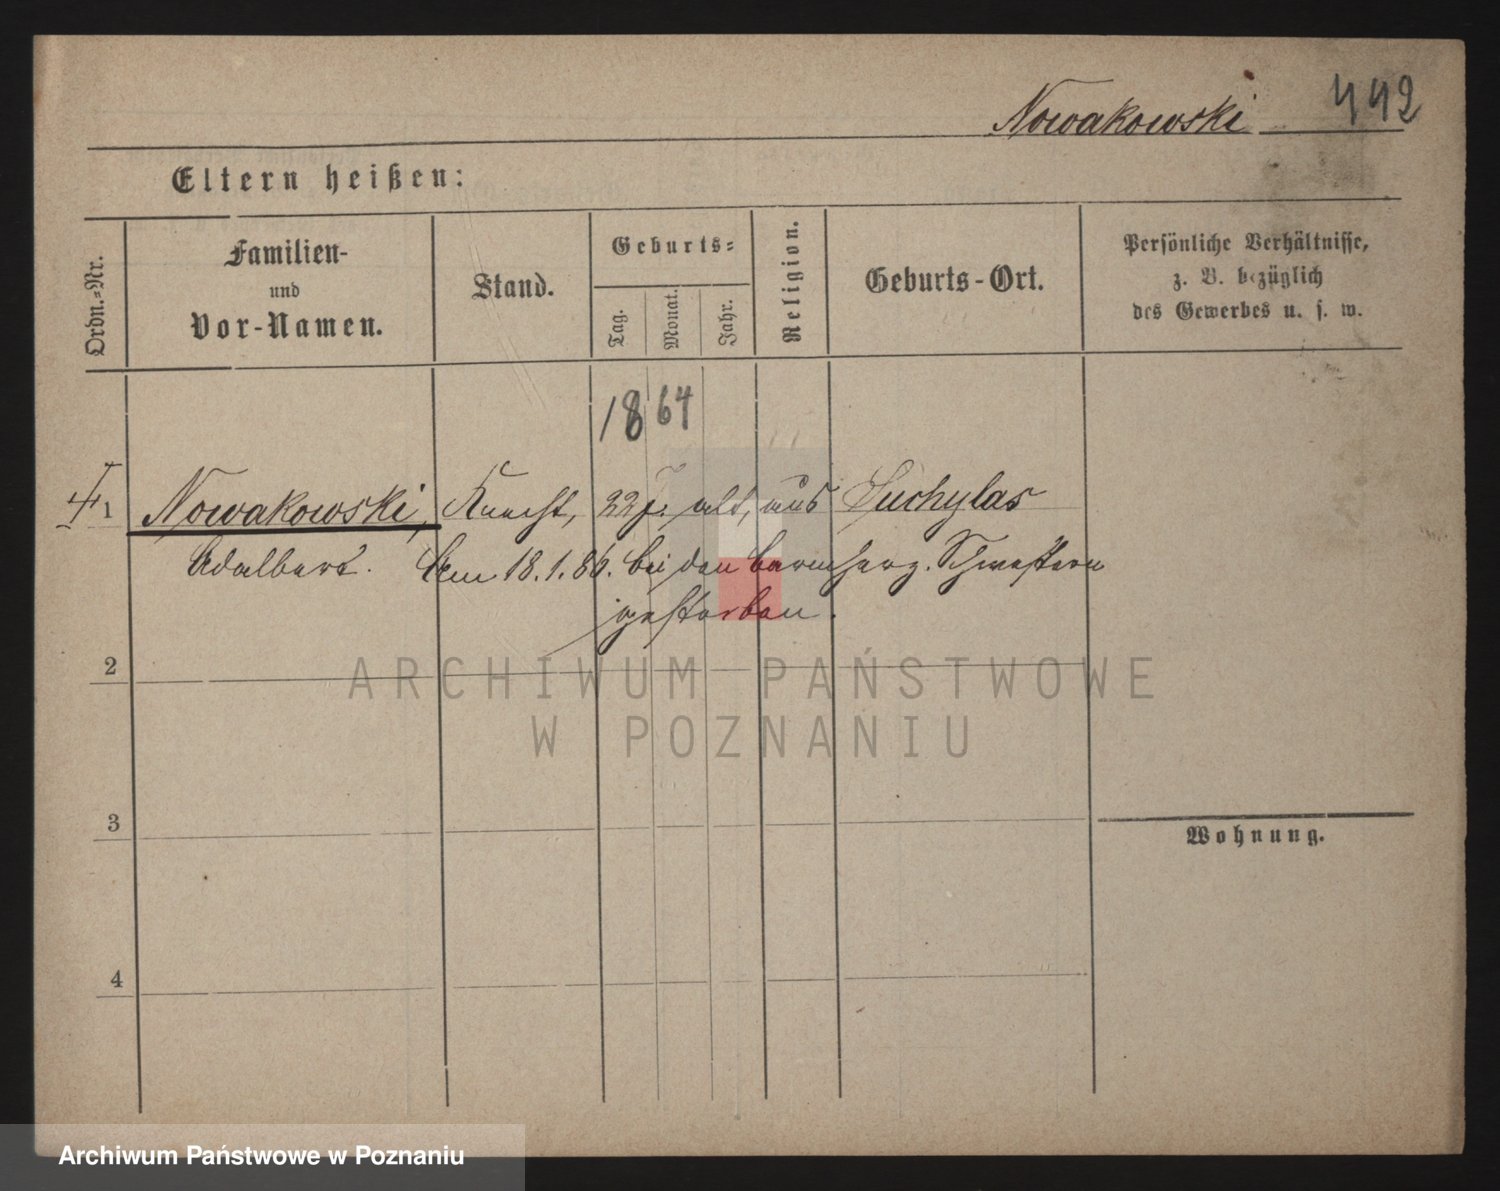 Nowakowski 442
Eltern heißen:
Ordn.=Nr.
Familien-
und
Vor-Namen.
Stand.
Geburts=
Tag.
Monat.
Jahr.
Religion.
Geburts-Ort.
Persönliche Verhältnisse,
z. B. bezüglich
des Gewerbes u. s. w.
1864
1 Nowakowski, Knecht, 22 J. alt, aus Suchylas
Adalbert. Am 18.1.86. bei den barmherz. Schwestern
gestorben.
2
ARCHIWUM PAŃSTWOWE
W POZNANIU
3
Wohnung.
4
Archiwum Państwowe w Poznaniu